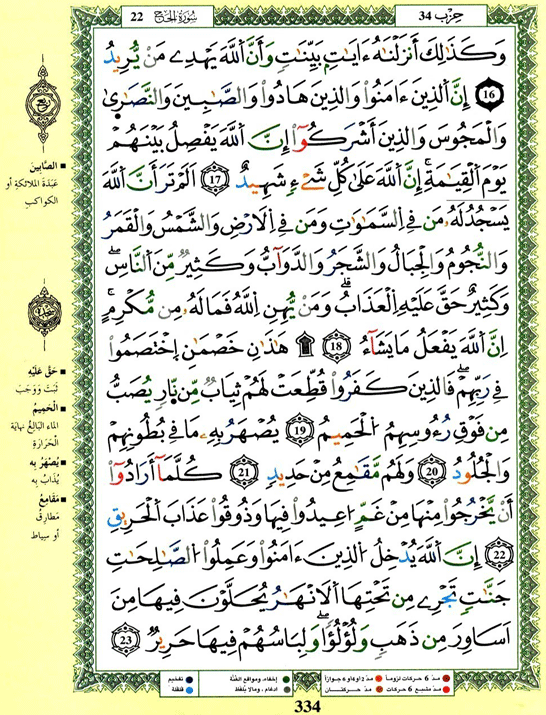 سُورَةُ الحَجّ 22
حِزْب 34
وَكَذَٰلِكَ أَنزَلْنَٰهُ ءَايَٰتِۢ بَيِّنَٰتٖ وَأَنَّ اَللَّهَ يَهْدِے مَنْ يُّرِيدُ
16 إِنَّ اَلذِينَ ءَامَنُواْ وَالذِينَ هَادُواْ وَالصَّٰبِينَ وَالنَّصَٰرَىٰ
وَالْمَجُوسَ وَالذِينَ أَشْرَكُوٓاْ إِنَّ اَللَّهَ يَفْصِلُ بَيْنَهُمْ
يَوْمَ اَلْقِيَٰمَةِ إِنَّ اَللَّهَ عَلَىٰ كُلِّ شَےْءٖ شَهِيدٌ 17 اَلَمْ تَرَ أَنَّ اَللَّهَ
يَسْجُدُ لَهُۥ مَن فِے اِلسَّمَٰوَٰتِ وَمَن فِے اِلَارْضِ وَالشَّمْسُ وَالْقَمَرُ
وَالنُّجُومُ وَالْجِبَالُ وَالشَّجَرُ وَالدَّوَآبُّ وَكَثِيرٞ مِّنَ اَلنَّاسِ
وَكَثِيرٌ حَقَّ عَلَيْهِ اِلْعَذَابُ وَمَنْ يُّهِنِ اِللَّهُ فَمَا لَهُۥ مِن مُّكْرِمٍ
اِنَّ اَللَّهَ يَفْعَلُ مَا يَشَآءُ 18 هَٰذَٰنِ خَصْمَٰنِ اِخْتَصَمُواْ
فِے رَبِّهِمْ فَالذِينَ كَفَرُواْ قُطِّعَتْ لَهُمْ ثِيَابٞ مِّن نّارٖ يُصَبُّ
مِن فَوْقِ رُءُوسِهِمُ اُلْحَمِيمُ 19 يُصْهَرُ بِهِۦ مَا فِے بُطُونِهِمْ
وَالْجُلُودُ 20 وَلَهُم مَّقَٰمِعُ مِنْ حَدِيدٖ 21 كُلَّمَآ أَرَادُوٓاْ
أَنْ يَّخْرُجُواْ مِنْهَا مِنْ غَمٍّ اُعِيدُواْ فِيهَا وَذُوقُواْ عَذَابَ اَلْحَرِيقِ
22 إِنَّ اَللَّهَ يُدْخِلُ اُلذِينَ ءَامَنُواْ وَعَمِلُواْ اُلصَّٰلِحَٰتِ
جَنَّٰتٖ تَجْرِے مِن تَحْتِهَا اَلَانْهَٰرُ يُحَلَّوْنَ فِيهَا مِنَ
اَسَاوِرَ مِن ذَهَبٖ وَلُؤْلُؤاٗ وَلِبَاسُهُمْ فِيهَا حَرِيرٞ 23
ربع
سجدة
■ الصَّابِينَ
عَبَدَةَ الملائكةِ أو
الكواكبِ
■ حَقَّ عَلَيْهِ
ثَبَتَ وَوَجَبَ
■ الْحَمِيمُ
الماء البَالِغُ نِهايَةَ
الحَرَارَةِ
■ يُصْهَرُ بِهِ
يُذَابُ بِهِ
■ مَقَامِعُ
مَطارِقُ
أو سِيَاط
مدّ 6 حركات لزوماً مدّ 2 أو 4 أو 6 جوازاً إخفاء، ومواقع الغُنَّة تفخيم
مدّ مشبع 6 حركات مدّ حركتان إدغام، وما لا يُلفظ قلقلة
334